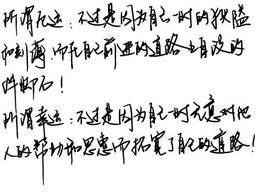 所谓厄运：不过是因为自己一时的狭隘
和刻薄，而在自己前进的道路上自设的
绊脚石！
所谓幸运：不过是因为自己一时无意对他
人的帮助和恩惠而拓宽了自己的道路！